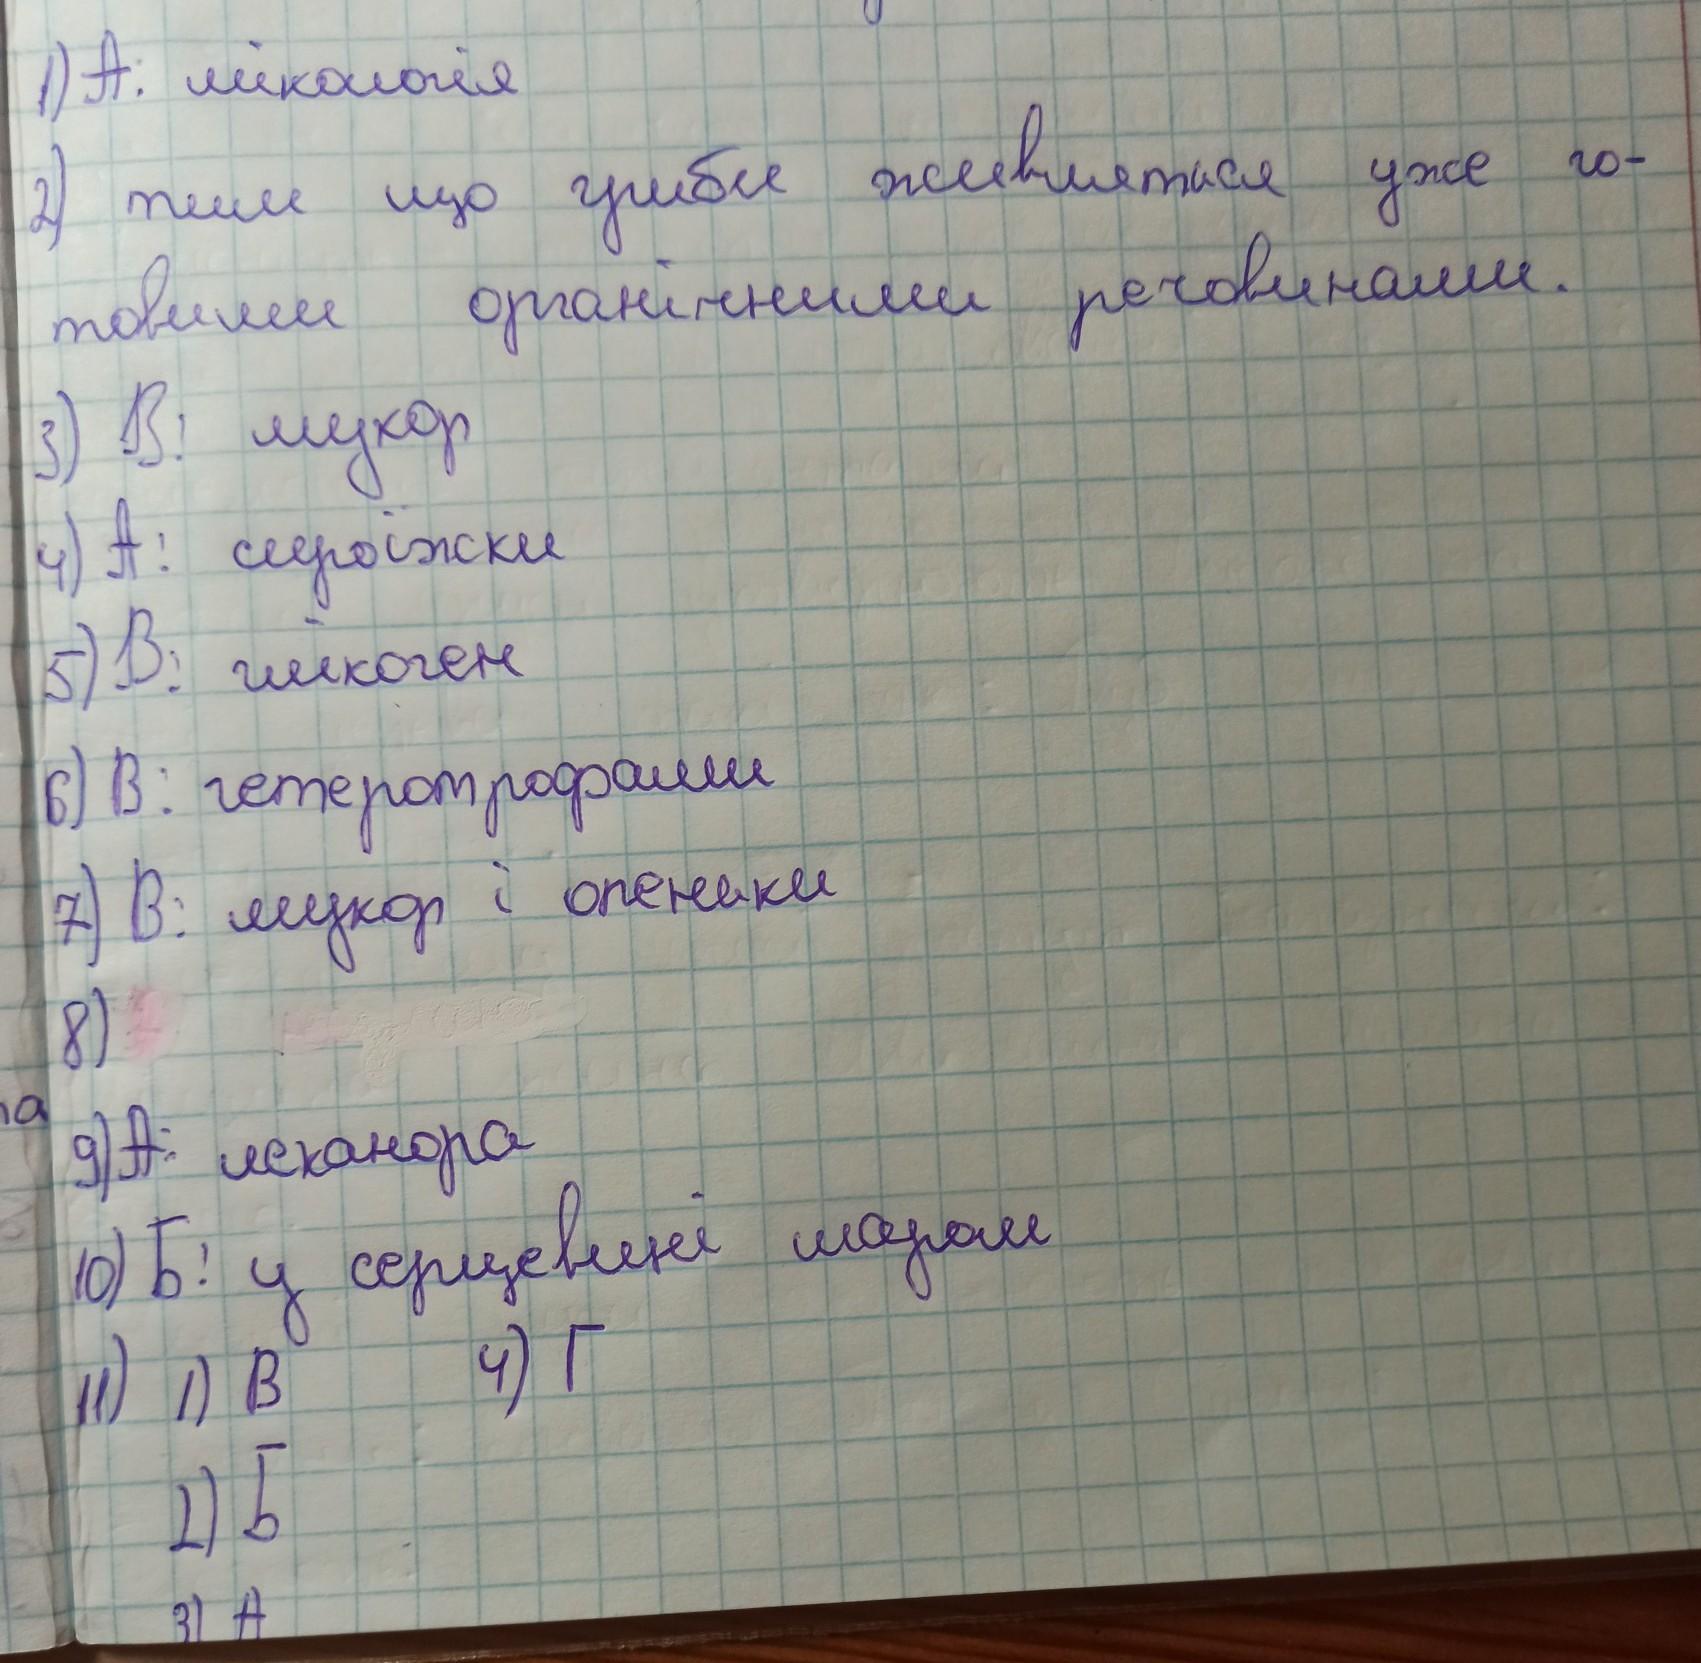 1) А: мікологія
2) тим що гриби живляться уже го-
товими органічними речовинами.
3) В: мукор
4) А: сироїжки
5) В: глікоген
6) В: гетеротрофами
7) В: мукор і опеньки
8)
9) А: леканора
10) Б: у серцевині шаром
11) 1) В 4) Г
2) Б
3) А